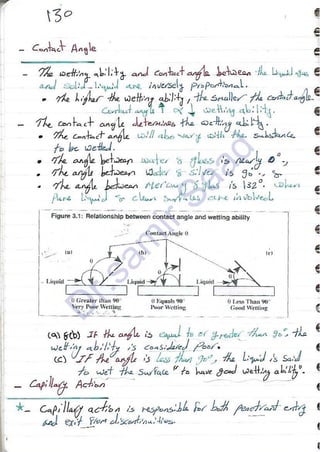 130
- Contact Angle
- The wetting ability and contact angle between the liquid gas
and solid-liquid are inversely proportional.
• The higher the wetting ability, the smaller the contact angle.
Contact angle ↑ α ↓ wetting ability.
- The contact angle determines the wetting ability.
• The contact angle will also vary with the substance
to be wetted.
• The angle between water & glass is nearly 0°,
• The angle between Water & Silver is 90°, &
• The angle between Mercury & glass is 132°. when
Pure liquid & clean surfaces are involved
Figure 3.1: Relationship between contact angle and wetting ability
Contact Angle θ
(a) (b) (c)
θ θ θ
Liquid Liquid Liquid
θ Greater than 90° θ Equals 90° θ Less Than 90°
Very Poor Wetting Poor Wetting Good Wetting
(a) & (b) If the angle is equal to or greater than 90° the
wetting ability is considered Poor.
(c) IF the angle is less than 90°, the liquid is said
to wet the surface "to have good wetting ability".
- Capillary Action
* - Capillary action is responsible for both penetrant entry
and exit from discontinuities.